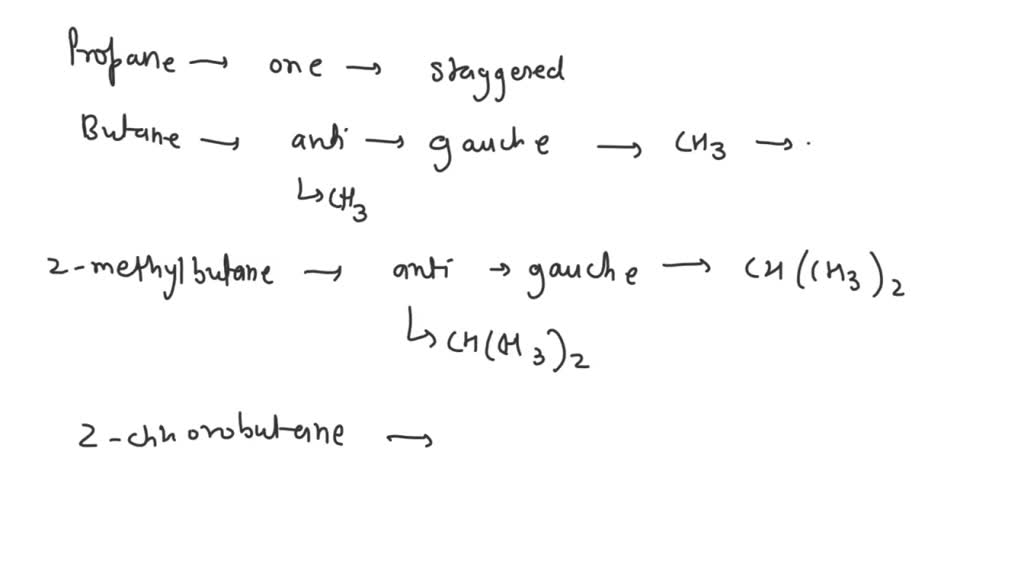 Propane → one → staggered
Butane → anti → gauche → CH3 → ·
↳ CH3
2-methylbutane → anti → gauche → CH(CH3)2
↳ CH(H3)2
2-chhorobutane →